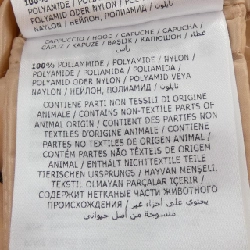 100% POLYAMIDE / POLYAMID / NYLON /
POLYAMID ODER NYLON / POLYAMID VEYA
NAYLON / НЕЙЛОН, ПОЛИАМИД / نايلون
CAPPUCCIO / HOOD / CAPUCHE / CAPUCHA /
CAPUZ / KAPUZE / BAŞLIK / КАПЮШОН / غطاء
رأس
100% POLIAMMIDE / POLYAMIDE / NYLON /
POLYAMIDE / POLIAMIDA / POLIAMIDA /
POLYAMID ODER NYLON / POLYAMID VEYA
NAYLON / НЕЙЛОН, ПОЛИАМИД / نايلون
CONTIENE PARTI NON TESSILI DI ORIGINE
ANIMALE / CONTAINS NON-TEXTILE PARTS OF
ANIMAL ORIGIN / CONTIENT DES PARTIES NON
TEXTILES D'ORIGINE ANIMALE / CONTIENE
PARTES NO TEXTILES DE ORIGEN ANIMAL /
CONTÉM PARTES NÃO TÊXTEIS DE ORIGEM
ANIMAL / ENTHÄLT NICHTTEXTILE TEILE
TIERISCHEN URSPRUNGS / HAYVAN MENŞELİ,
TEKSTİL OLMAYAN PARÇALAR İÇERİR /
СОДЕРЖИТ НЕТКАНЫЕ ЧАСТИ ЖИВОТНОГО
ПРОИСХОЖДЕНИЯ / يحتوي على أجزاء غير
منسوجة من أصل حيواني